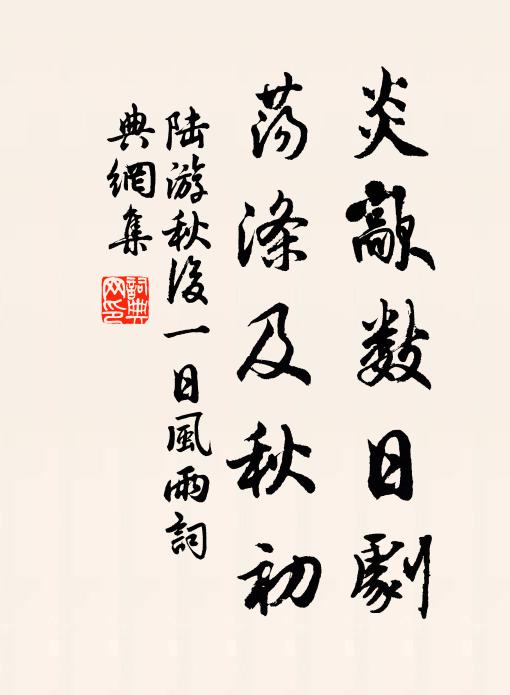 炎歊数日劇
荡滌及秋初
陆游秋後一日風雨詞
典網集
詞典
网印